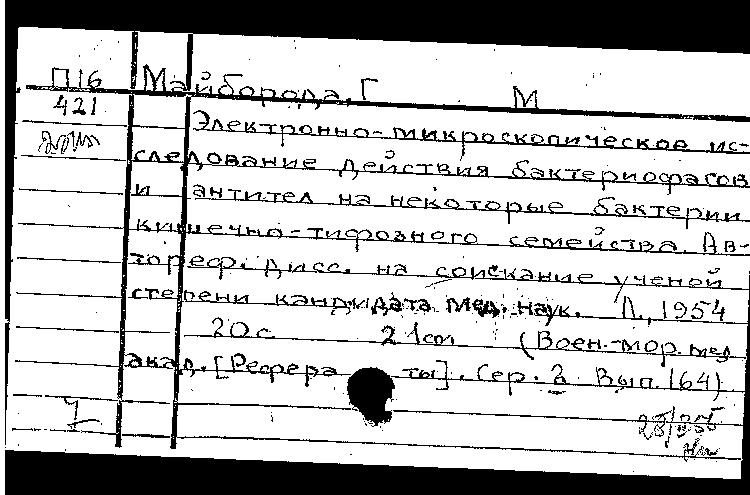 П16 Майборода, Г М
421
Электронно-микроскопическое ис-
следование действия бактериофагов
и антител на некоторые бактерии
кишечно-тифозного семейства. Ав-
тореф. дисс. на соискание ученой
степени кандидата мед. наук. Л., 1954
20с 21cm (Воен.-мор. мед
акад. [Рефера ты]. Сер. 2 Вып. 164)